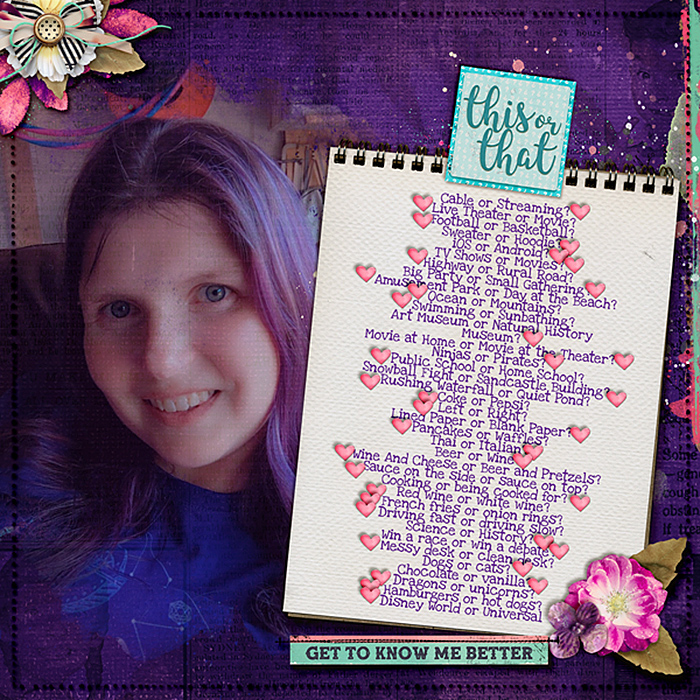 this or
that
Cable or Streaming?
Live Theater or Movie?
Football or Basketball?
Sweater or Hoodie?
iOS or Android?
TV Shows or Movies?
Highway or Rural Road?
Big Party or Small Gathering?
Amusement Park or Day at the Beach?
Ocean or Mountains?
Swimming or Sunbathing?
Art Museum or Natural History
Museum?
Movie at Home or Movie at the Theater?
Ninjas or Pirates?
Public School or Home School?
Snowball Fight or Sandcastle Building?
Rushing Waterfall or Quiet Pond?
Coke or Pepsi?
Left or Right?
Lined Paper or Blank Paper?
Pancakes or Waffles?
Thai or Italian?
Beer or Wine?
Wine And Cheese or Beer and Pretzels?
Sauce on the side or sauce on top?
Cooking or being cooked for?
Red wine or white wine?
French fries or onion rings?
Driving fast or driving slow?
Science or History?
Win a race or win a debate?
Messy desk or clean desk?
Dogs or cats?
Chocolate or vanilla?
Dragons or unicorns?
Hamburgers or hot dogs?
Disney World or Universal
GET TO KNOW ME BETTER